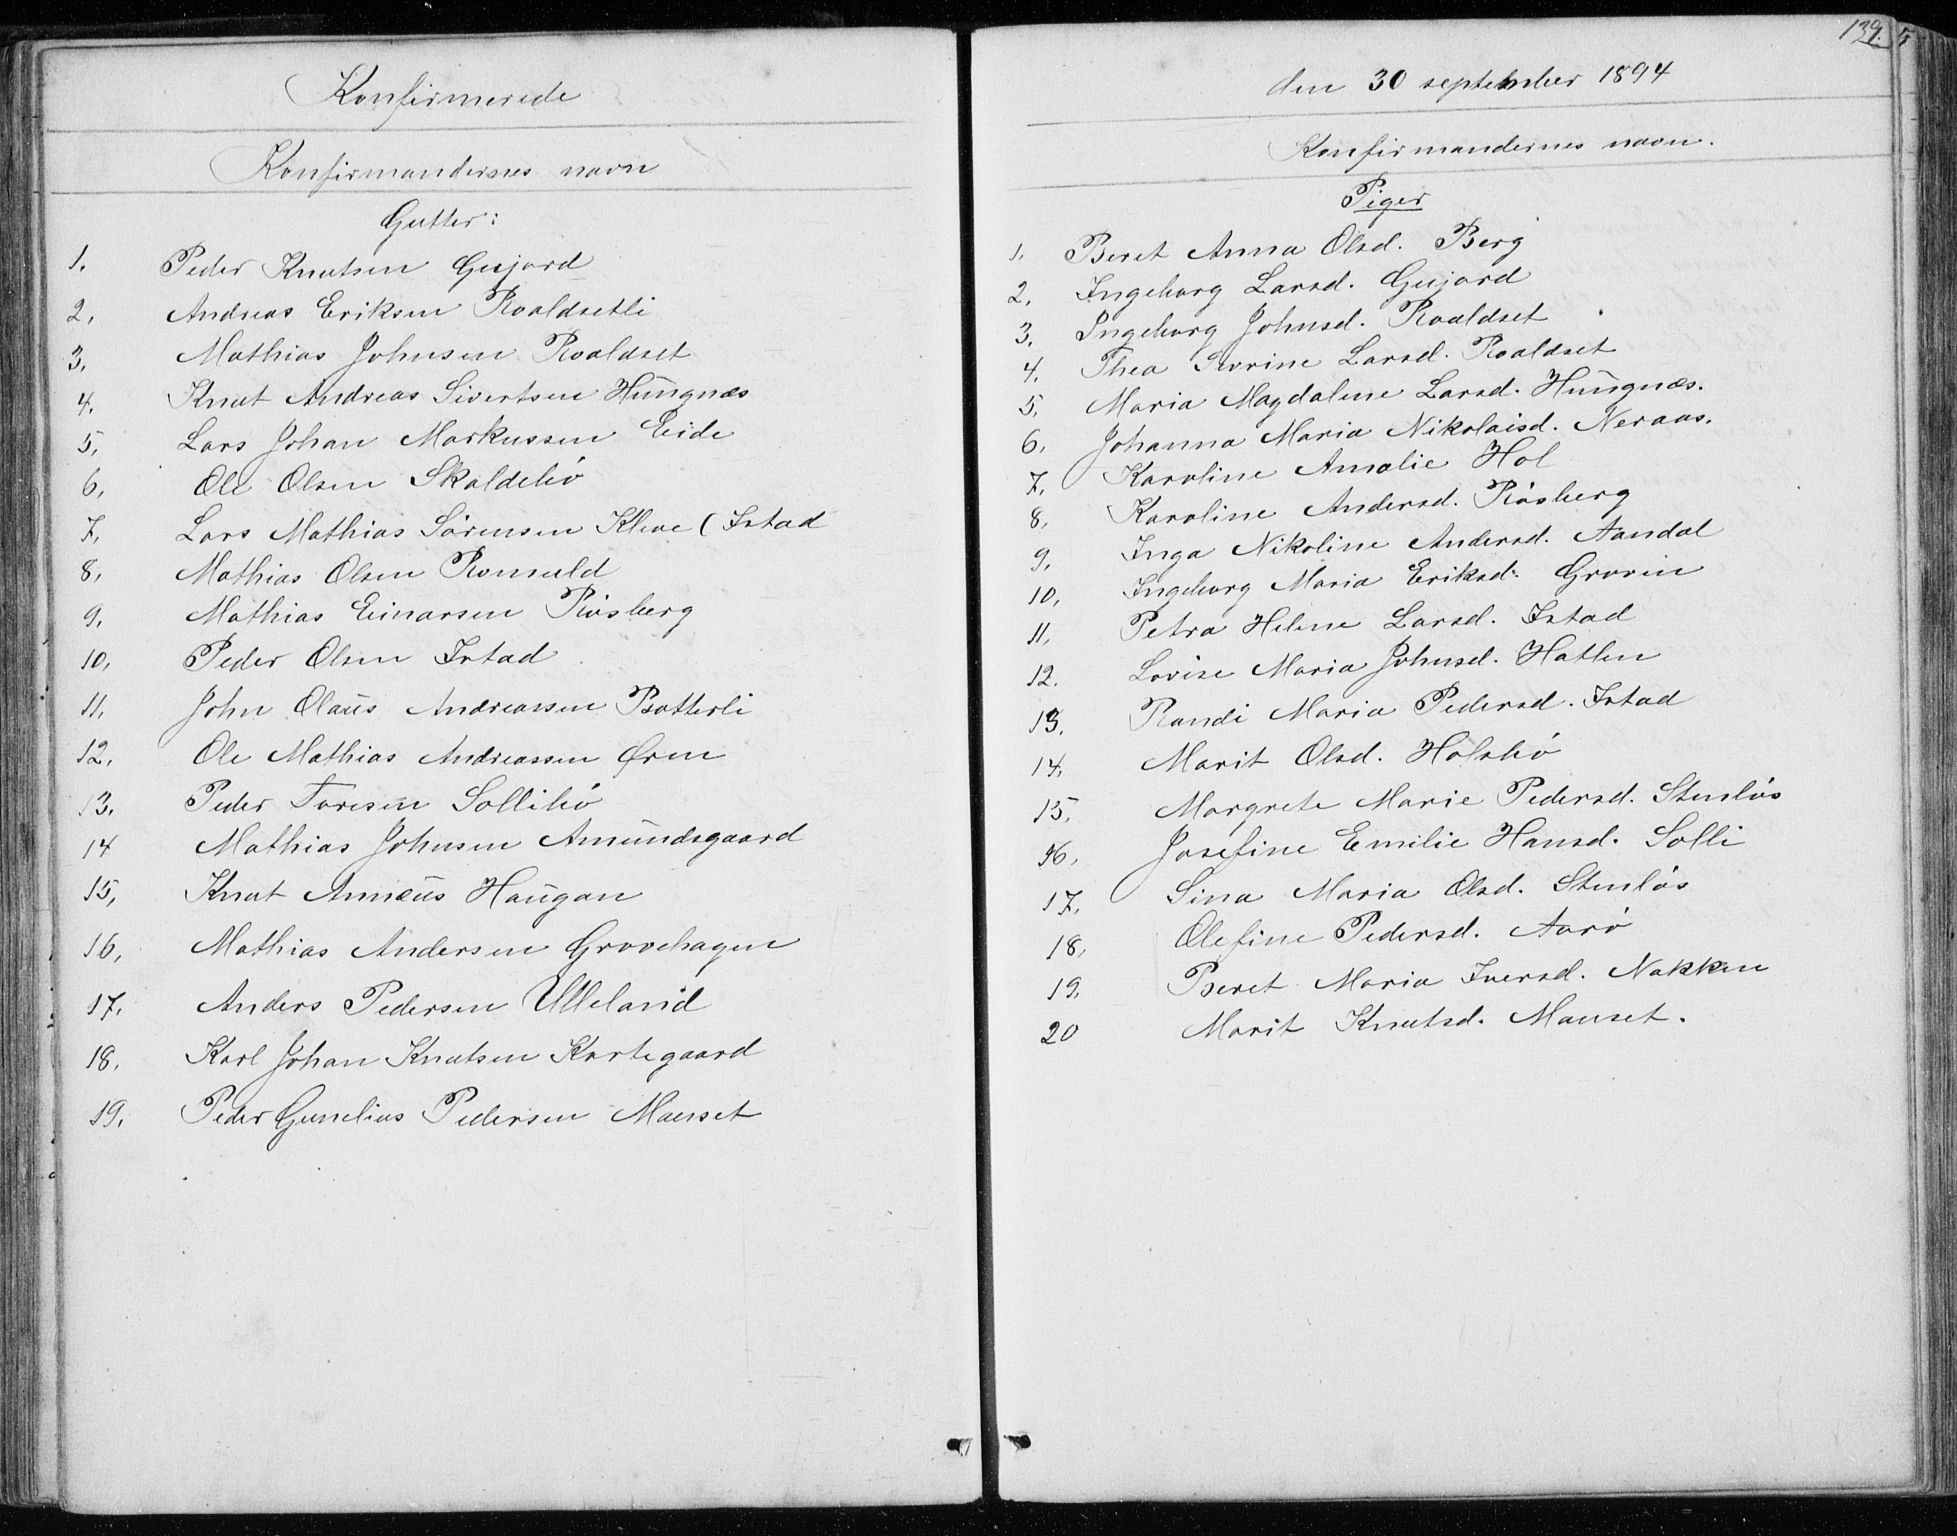 Konfirmerede
Konfirmandernes navn
Gutter:
1. Peder Knutsen Gujord
2, Andreas Eriksen Roaldsetli
3, Mathias Johnsen Roaldset
4, Knut Andreas Sivertsen Hungnæs
5, Lars Johan Markussen Eide
6, Ole Olsen Skaldebø
7, Lars Mathias Sørensen Kleve (Istad
8, Mathias Olsen Romuld
9, Mathias Einarsen Røsberg
10, Peder Olsen Istad
11, John Olaus Andreassen Botterli
12, Ole Mathias Andreassen Øren
13, Peder Toresen Sollibø
14 Mathias Johnsen Amundsgaard
15, Knut Annæus Haugan
16, Mathias Andersen Grovehagen
17, Anders Pedersen Ulleland
18, Karl Johan Knutsen Kortgaard
19, Peder Gunelius Pedersen Mauset
139.
den 30 september 1894
Konfirmandernes navn.
Piger
1, Beret Anna Olsd. Berg
2, Ingeborg Larsd. Gujord
3, Ingeborg Johnsd. Roaldset
4, Thea Severine Larsd. Roaldset
5, Maria Magdalene Larsd. Hungnæs.
6, Johanna Maria Nikolaisd. Neraas.
7, Karoline Amalie Hol
8, Karoline Andersd. Røsberg
9, Inga Nikoline Andersd. Aandal
10, Ingeborg Maria Eriksd. Grovin
11, Petra Helene Larsd. Istad
12. Lovise Maria Johnsd. Hatlen
13, Randi Maria Pedersd. Istad
14, Marit Olsd. Holsbø
15, Margrete Marie Pedersd. Stenløs
16, Josefine Emilie Hansd. Solli
17, Sina Maria Olsd. Stenløs
18, Olefine Pedersd. Aarø
19, Beret Maria Iversd. Nakken
20 Marit Knutsd. Mauset.